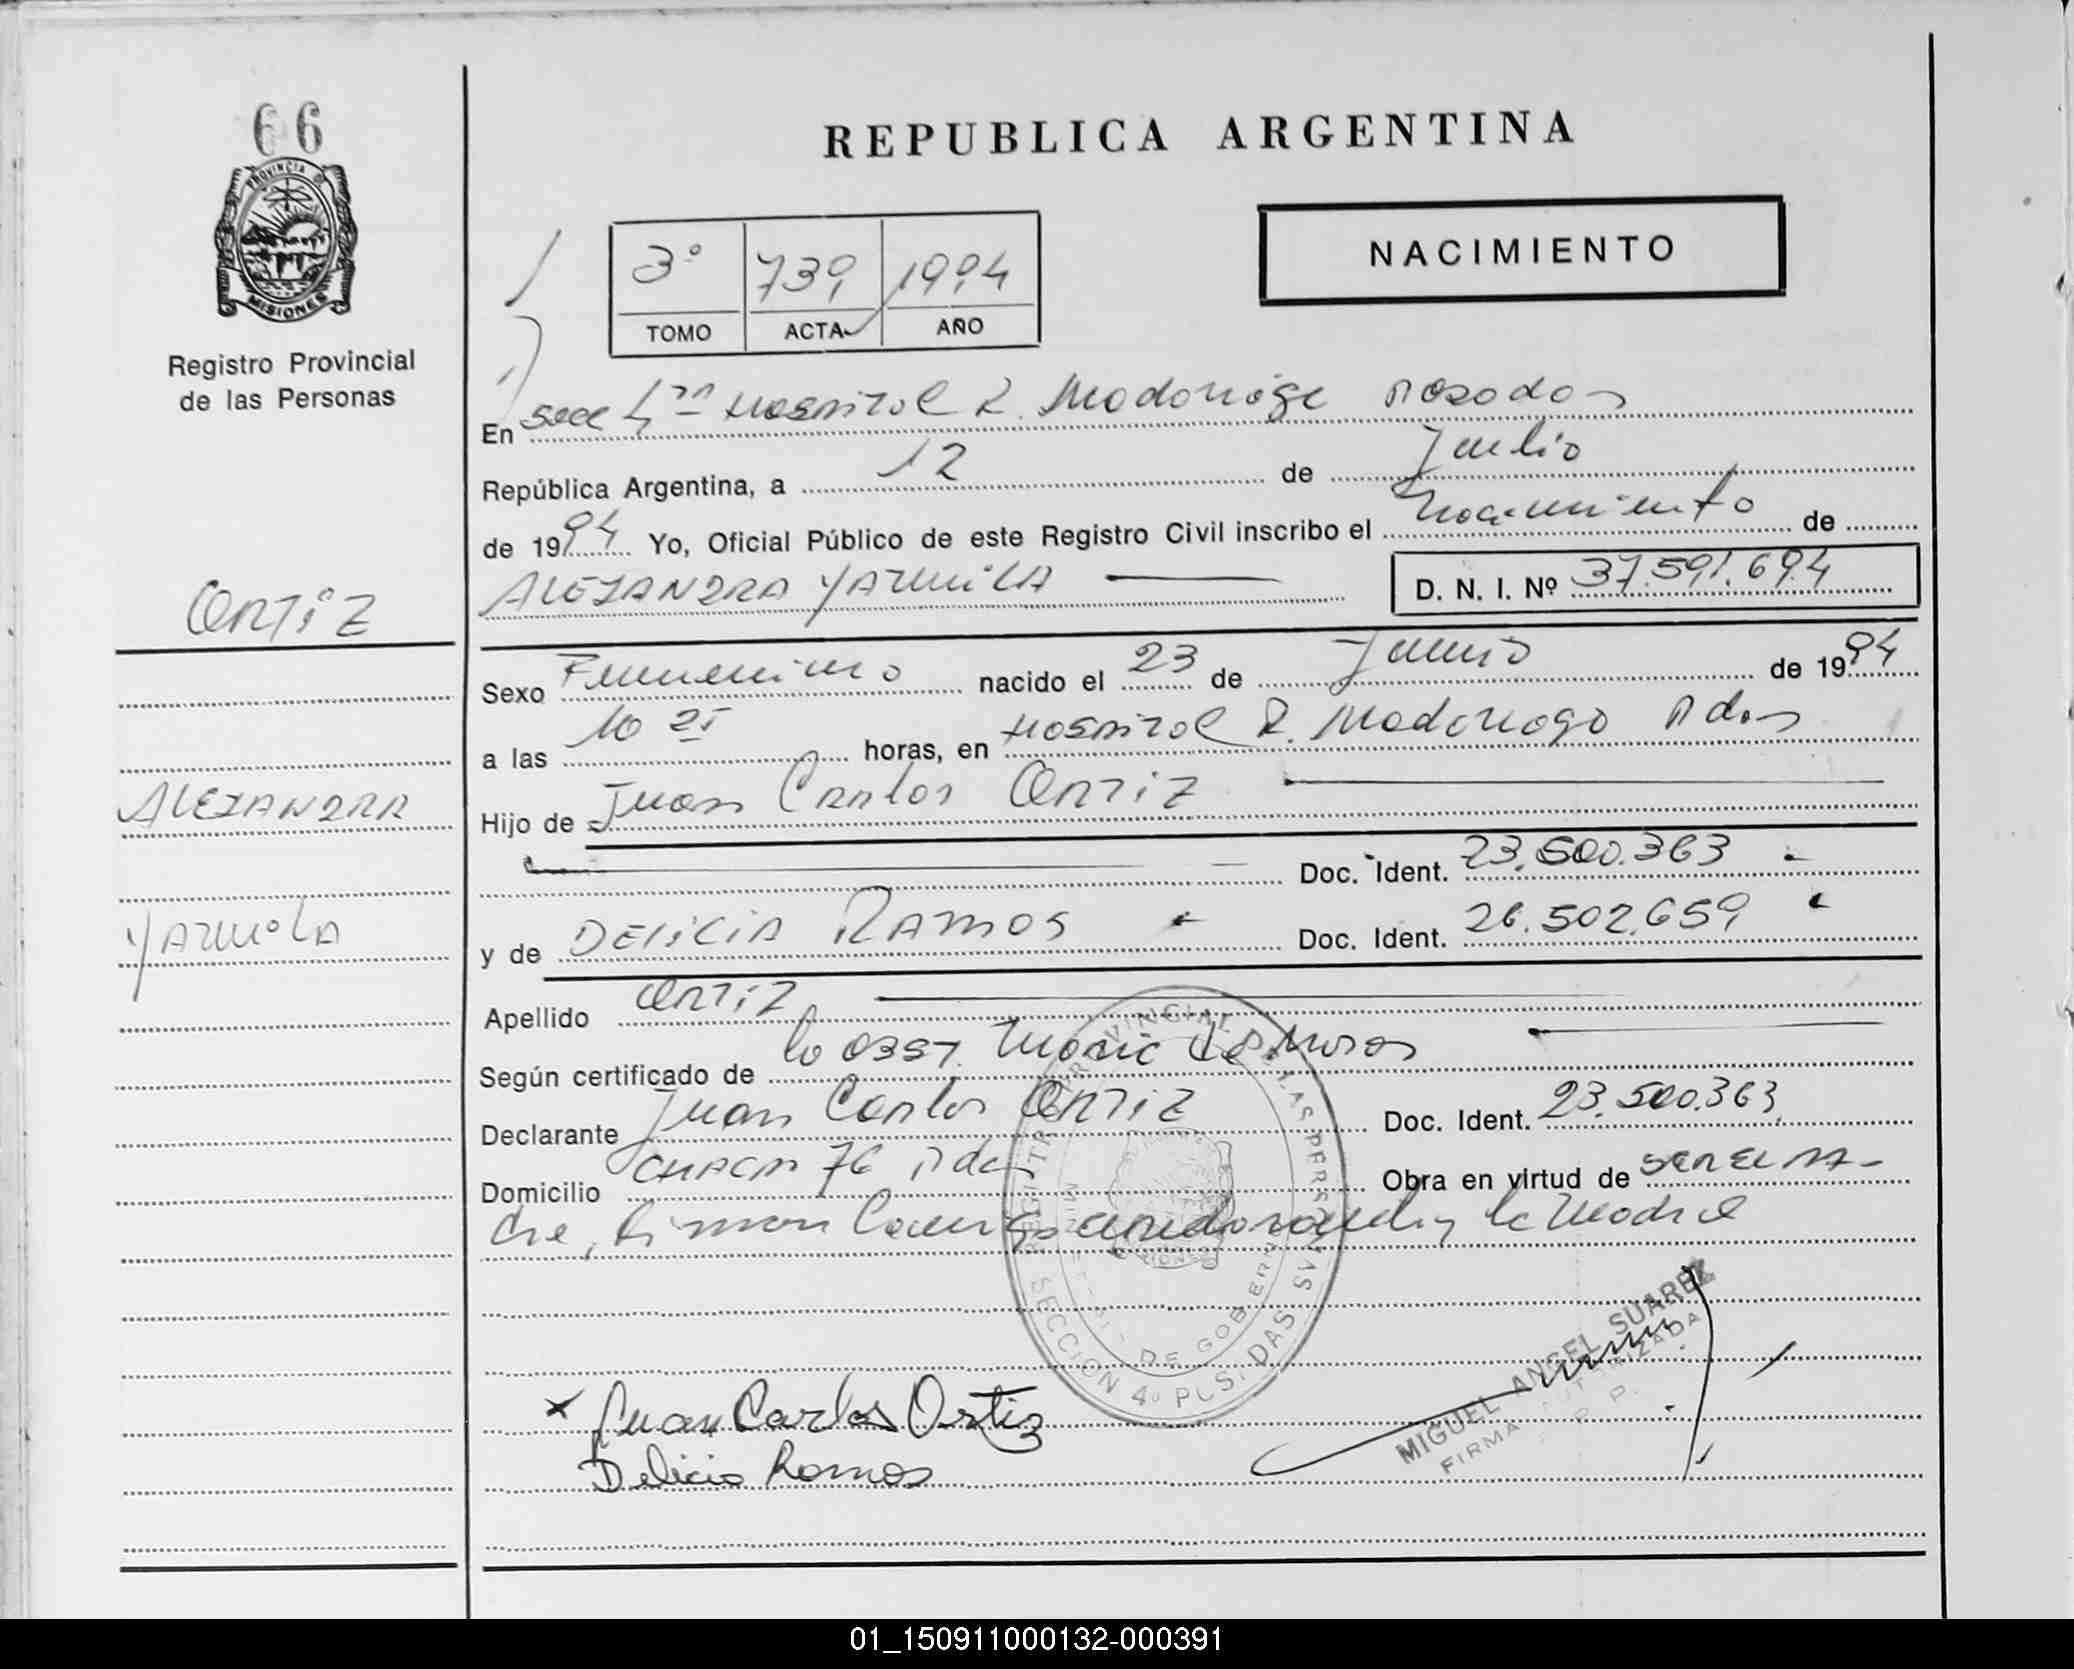 66
PROVINCIA DE
MISIONES
Registro Provincial
de las Personas
REPUBLICA ARGENTINA
NACIMIENTO
3° 739 1994
TOMO ACTA AÑO
En Secc 4ta Hospital R. Madariaga Posadas
República Argentina, a 12 de Julio
de 1994 Yo, Oficial Público de este Registro Civil inscribo el Nacimiento de
ALEJANDRA YAMILA D. N. I. Nº 37.591.694
ORTIZ
ALEJANDRA
YAMILA
Sexo Femenino nacido el 23 de Junio de 1994
a las 10 horas, en Hospital R. Madariaga Pdas
Hijo de Juan Carlos ORTIZ
Doc. Ident. 23.500.363
y de DELICIA RAMOS Doc. Ident. 26.502.659
Apellido ORTIZ
Según certificado de
Declarante Juan Carlos ORTIZ Doc. Ident. 23.500.363
Domicilio 76 Pdas Obra en virtud de SER EL PA-
dre, Firman la madre
SECCION 4º POSADAS
Juan Carlos Ortiz
Delicia Ramos
MIGUEL ANGEL SUAREZ
FIRMA AUTORIZADA
R. P. P.
01_150911000132-000391